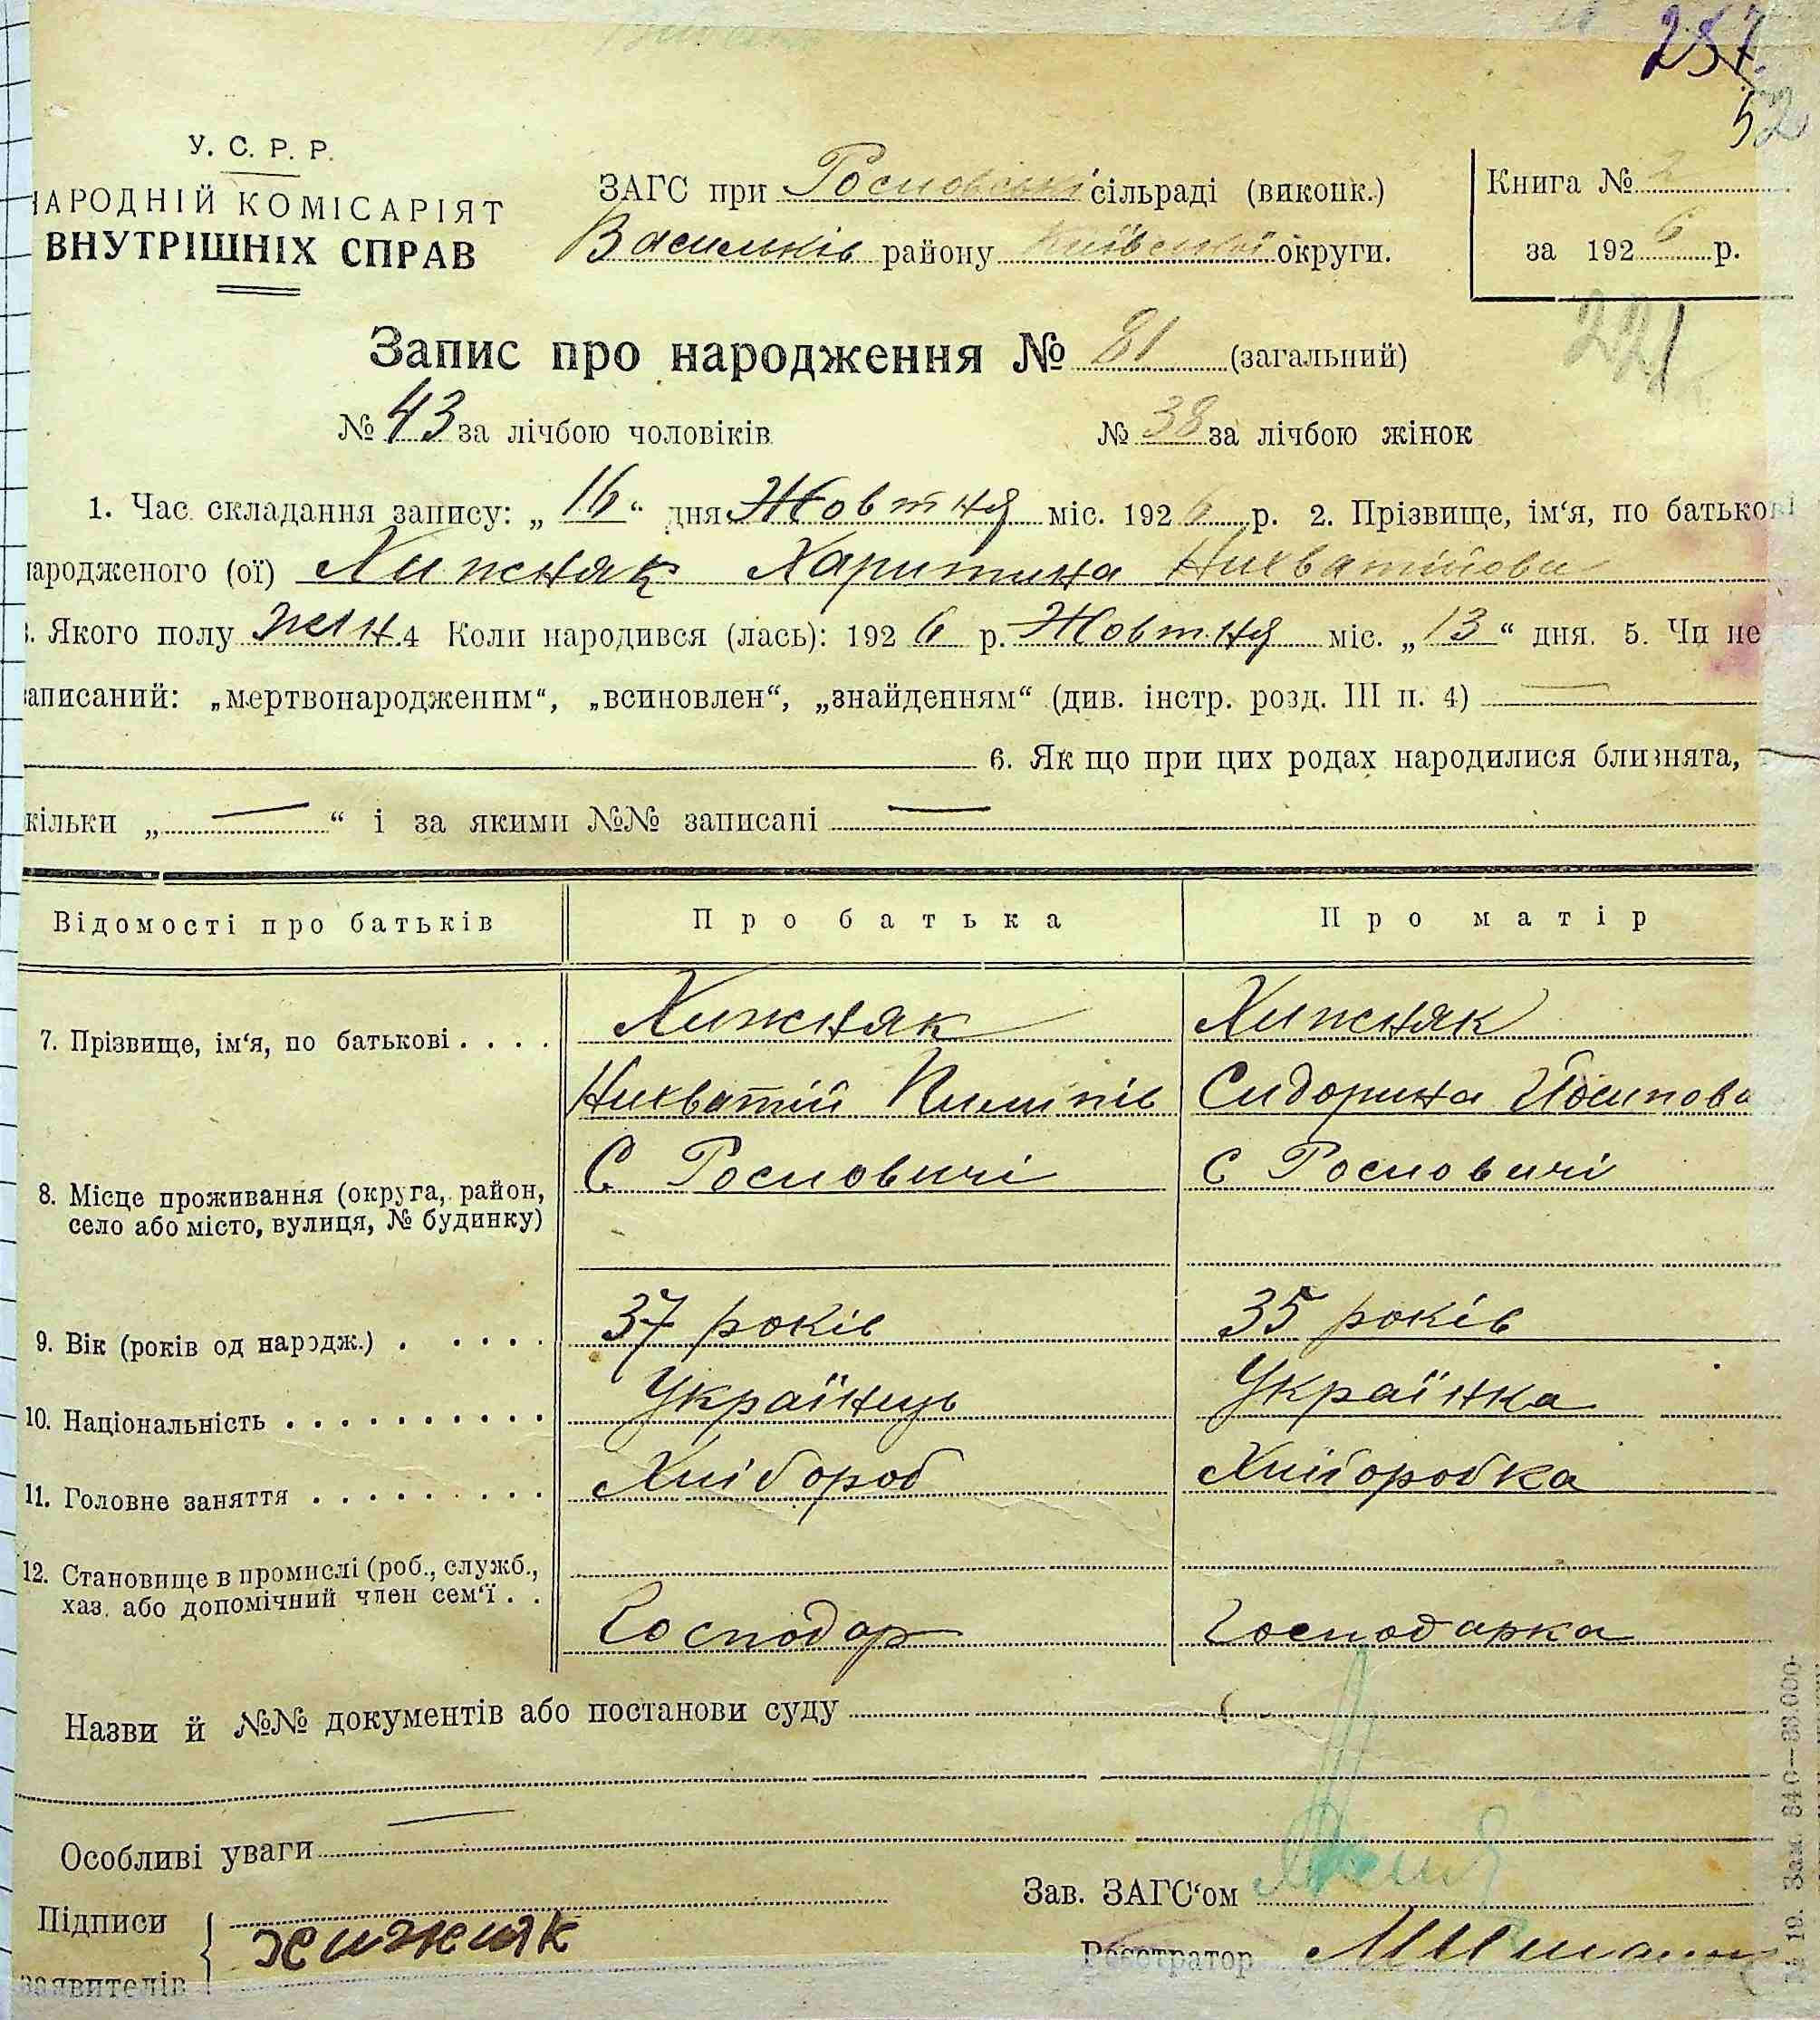 257
52
У. С. Р. Р.
НАРОДНІЙ КОМІСАРІЯТ
ВНУТРІШНІХ СПРАВ
ЗАГС при Росновській сільраді (виконк.)
Васильків району Київської округи.
Книга № 2
за 1926 р.
221
Запис про народження № 81 (загальний)
№ 43 за лічбою чоловіків № 38 за лічбою жінок
1. Час складання запису: „16“ дня Жовтня міс. 1926 р. 2. Прізвище, ім‘я, по батькові
народженого (ої) Хижняк Харитина
. Якого полу жен. 4 Коли народився (лась): 1926 р. Жовтня міс. „13“ дня. 5. Чи не
записаний: „мертвонародженим“, „всиновлен“, „знайденням“ (див. інстр. розд. III п. 4) —
6. Як що при цих родах народилися близнята,
кільки „—“ і за якими №№ записані —
Відомості про батьків Про батька Про матір
7. Прізвище, ім‘я, по батькові . . . . Хижняк Хижняк
Пилипів Сидорина Йосипова
8. Місце проживання (округа, район, село або місто, вулиця, № будинку) С Росновичі С Росновичі
9. Вік (років од народж.) . . . . . 37 років 35 років
10. Національність . . . . . . . . . . Українець Українка
11. Головне заняття . . . . . . . . . Хлібороб Хліборобка
12. Становище в промислі (роб., служб.,
хаз. або допомічний член сем‘ї . . Господар Господарка
Назви й №№ документів або постанови суду
Особливі уваги —
Зав. ЗАГС‘ом
Підписи
заявителів
хижняк
Реєстратор
№ 19. Зам. 840—33.000